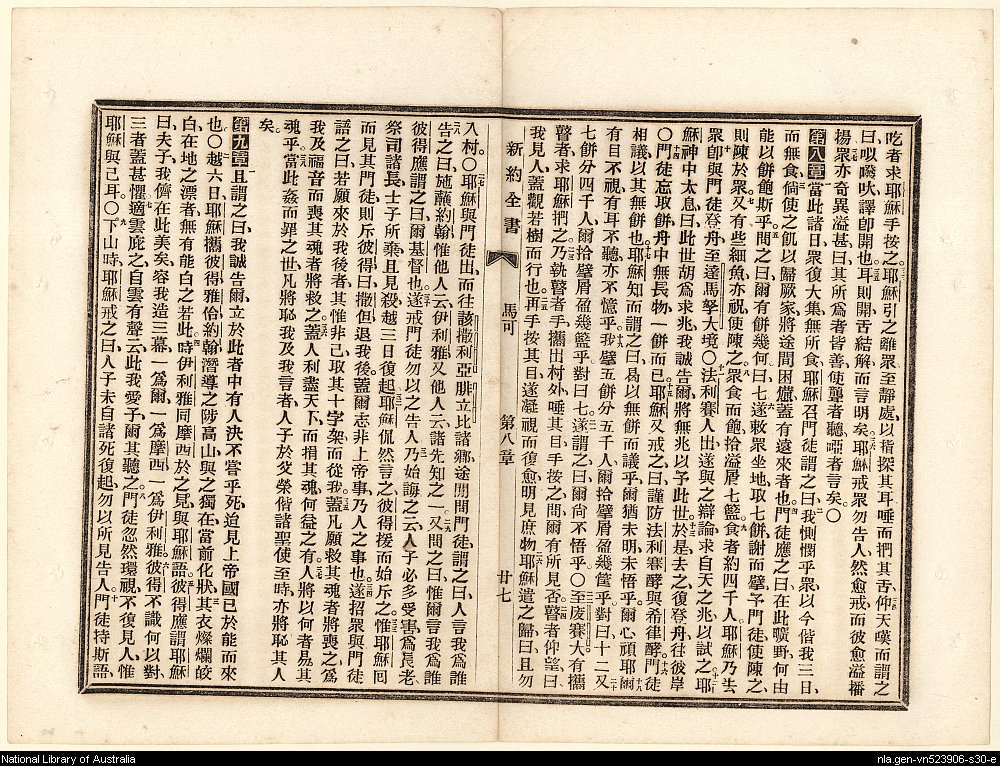 吃者求耶穌手按之耶穌引之離眾至靜處以指探其耳唾而捫其舌仰天嘆而謂之
曰㕭㗒吠譯卽開也耳則開舌結解而言明矣耶穌戒眾勿告人然愈戒而彼愈溢播
揚眾亦奇異溢甚曰其所爲者皆善使聾者聽啞者言矣〇
第八章當此諸日眾復大集無所食耶穌召門徒謂之曰我惻憫乎眾以今偕我三日
而無食倘使之飢以歸厥家將途間困憊蓋有遠來者也門徒應之曰在此曠野何由
能以餅飽斯乎問之曰爾有餅幾何曰七遂敕眾坐地取七餅謝而擘予門徒使陳之
則陳於眾又有些細魚亦祝使陳之眾食而飽拾溢屑七籃食者約四千人耶穌乃去
眾卽與門徒登舟至達馬孥大境〇法利賽人出遂與之辯論求自天之兆以試之耶
穌神中太息曰此世胡爲求兆我誠告爾將無兆以予此世於是去之復登舟往彼岸
〇門徒忘取餅舟中無長物一餅而已耶穌又戒之曰謹防法利賽酵與希律酵門徒
相議以其無餅也耶穌知而謂之曰曷以無餅而議乎爾猶未明未悟乎爾心頑耶爾
有目不視有耳不聽亦不憶乎我擘五餅分五千人爾拾擘屑盈幾筐乎對曰十二又
七餅分四千人爾拾擘屑盈幾籃乎對曰七遂謂之曰爾尙不悟乎〇至庋賽大有攜
瞽者求耶穌捫之乃執瞽者手攜出村外唾其目手按之問爾有所見否瞽者仰望曰
我見人蓋觀若樹而行也再手按其目遂凝視而復愈明見庶物耶穌遣之歸曰且勿
新約全書 馬可 第八章 廿七
入村〇耶穌與門徒出而往該撒利亞腓立此諸鄉途間問門徒謂之曰人言我爲誰
告之曰施蘸約翰惟他人云伊利雅又他人云諸先知之一又問之曰惟爾言我爲誰
彼得應謂之曰爾基督也遂戒門徒勿以之告人乃始誨之云人子必多受害爲長老
祭司諸長士子所棄且見殺越三日復起耶穌侃然言之彼得援而始斥之惟耶穌囘
而見其門徒則斥彼得曰撒但退我後蓋爾志非上帝事乃人之事也遂招眾與門徒
語之曰若願來於我後者其惟非己取其十字架而從我蓋凡願救其魂者將喪之爲
我及福音而喪其魂者將救之蓋人利盡天下而捐其魂何益之有人將以何者易其
魂乎當此姦而罪之世凡將恥我及我言者人子於父榮偕諸聖使至時亦將恥其人
矣
第九章且謂之曰我誠告爾立於此者中有人決不嘗乎死迨見上帝國已於能而來
也〇越六日耶穌攜彼得雅各約翰潛導之陟高山與之獨在當前化狀其衣燦爛皎
白在地之漂者無有能白之若此時伊利雅同摩西於之見與耶穌語彼得應謂耶穌
曰夫子我儕在此美矣容我造三幕一爲爾一爲摩西一爲伊利雅彼得不識何以對
三者蓋甚懼適雲庇之自雲有聲云此我愛子爾其聽之門徒忽然環視不復見人惟
耶穌與己耳〇下山時耶穌戒之曰人子未自諸死復起勿以所見告人門徒持斯語
National Library of Australia
nla.gen-vn523906-s30-e